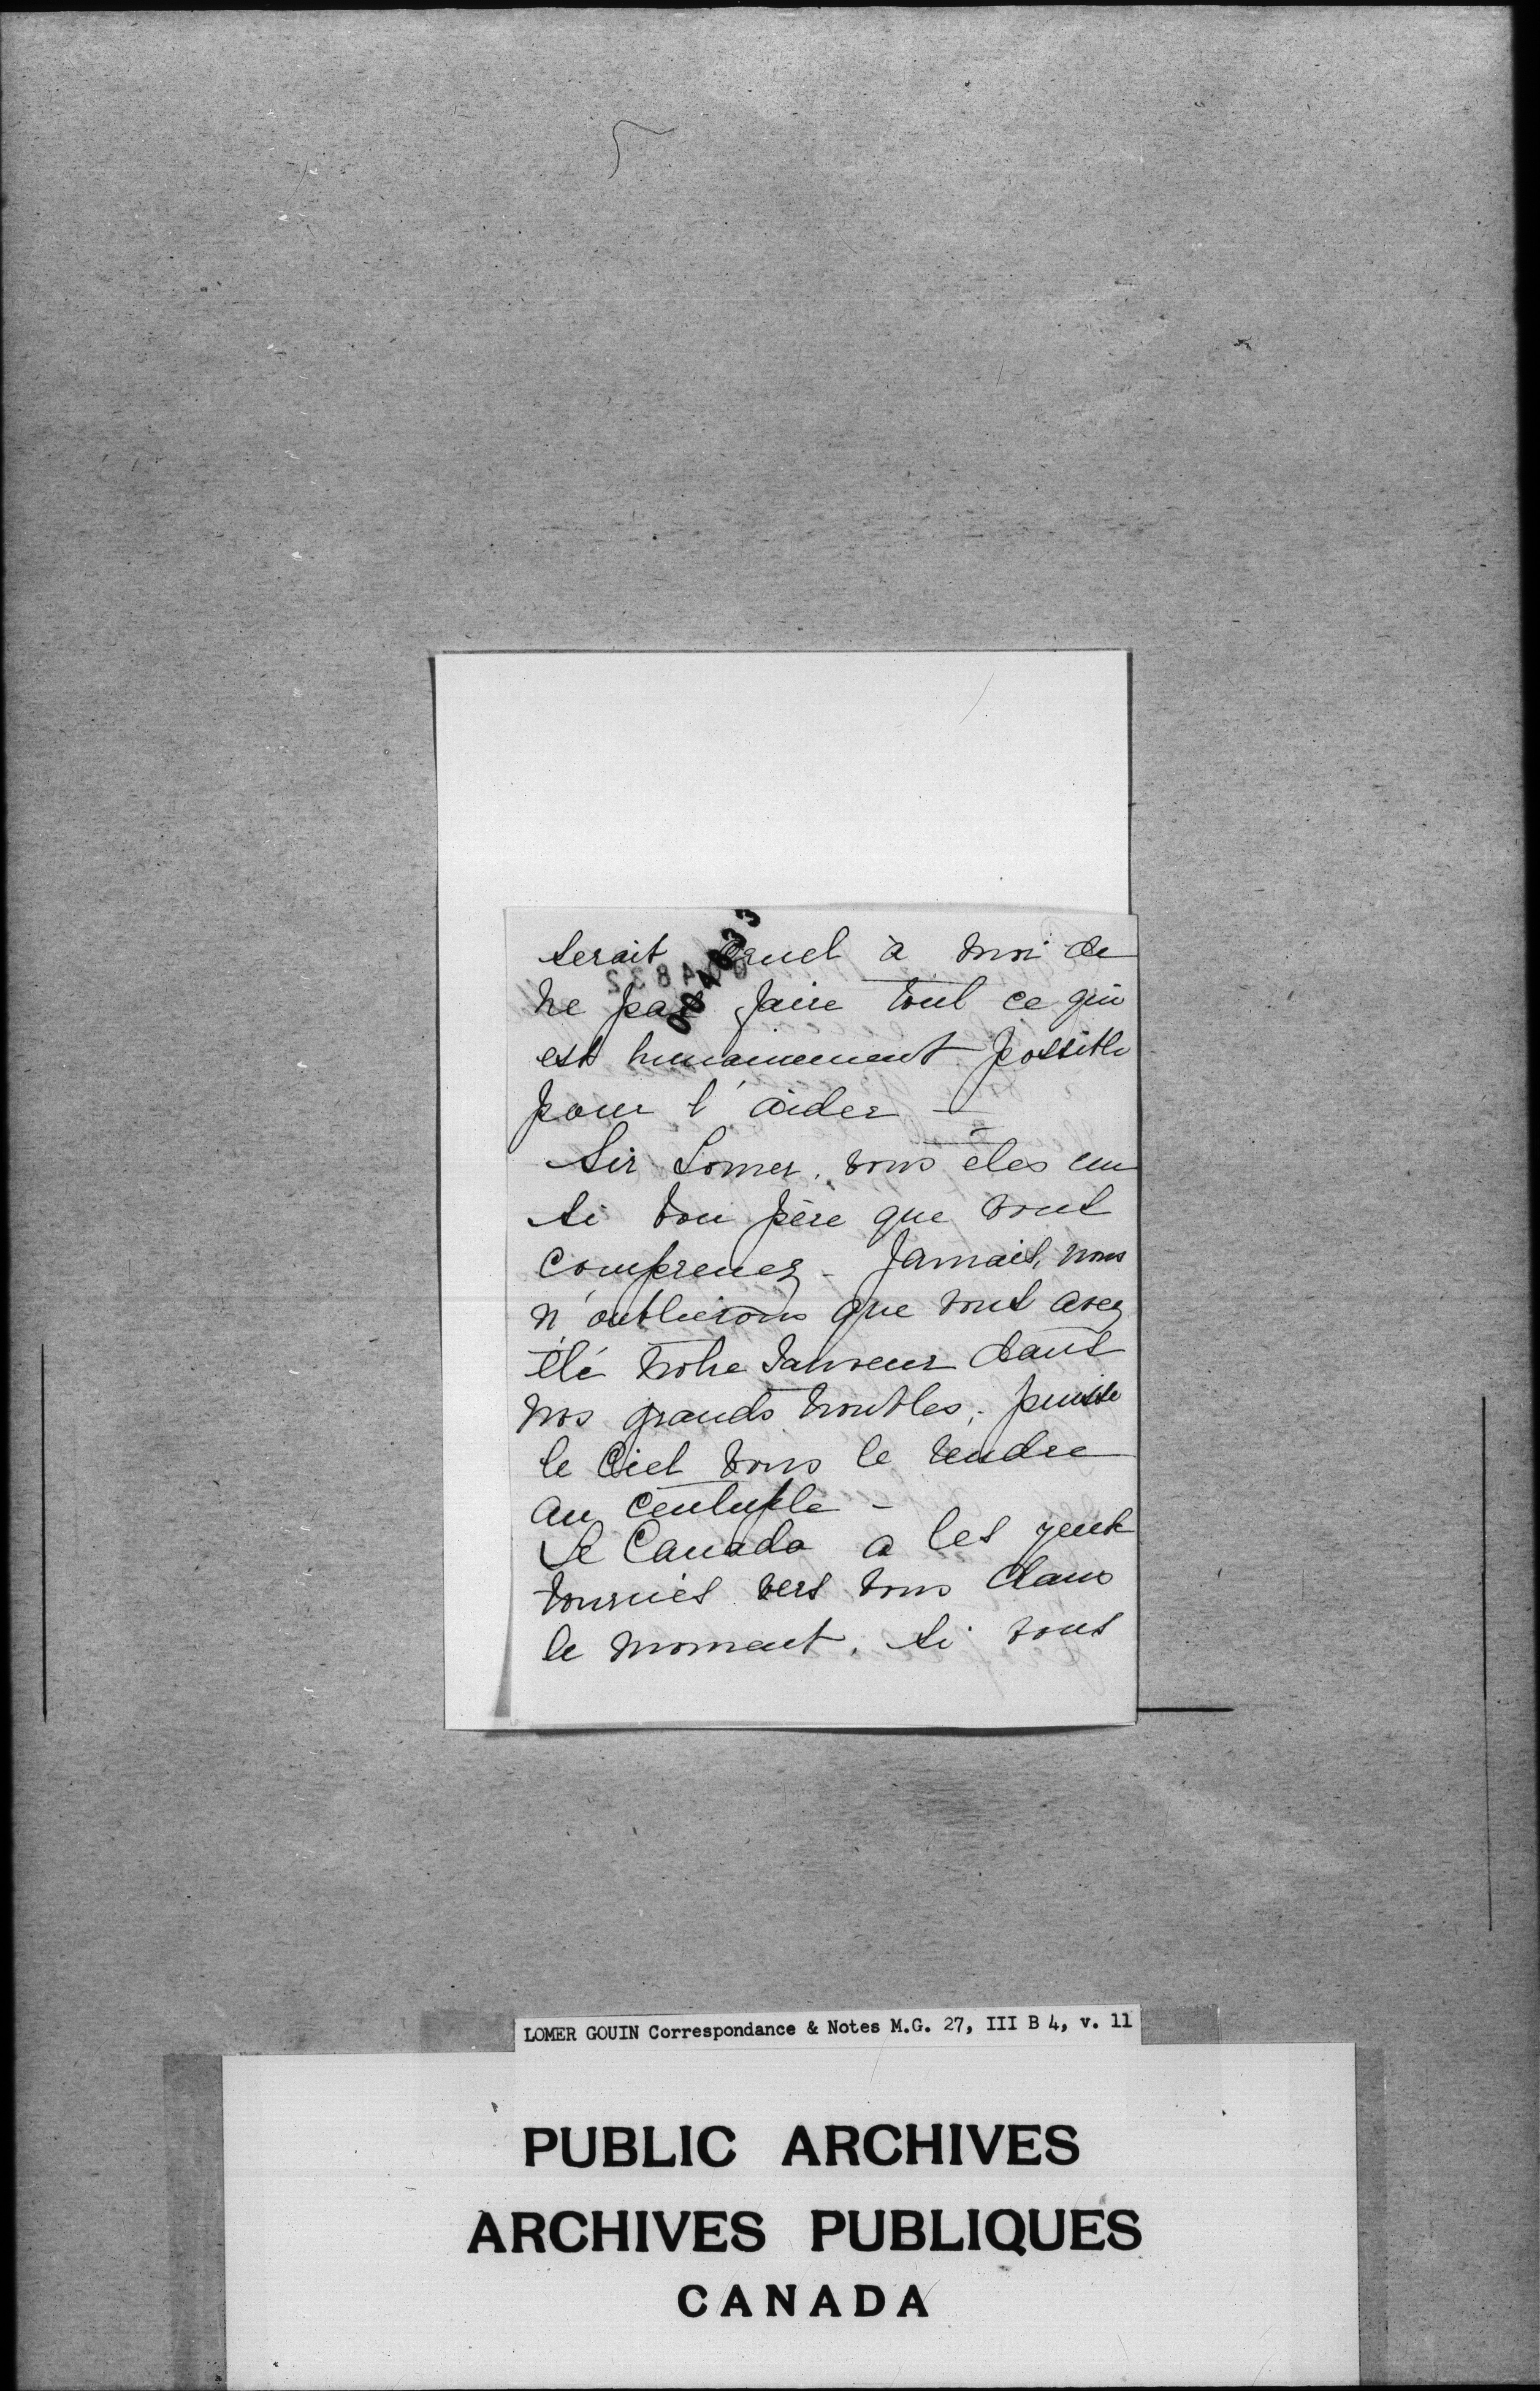 serait cruel à moi de
ne pas faire tout ce qui
est humainement possible
pour l'aider —
Sir Lomer, vous êtes un
si bon père que vous
comprenez - Jamais, nous
n'oublierons que vous avez
été notre sauveur dans
nos grands troubles; puisse
le Ciel vous le rendre
au centuple -
Le Canada a les yeux
tournés vers vous dans
le moment. Si vous
004833
004832
LOMER GOUIN Correspondance & Notes M.G. 27, III B 4, v. 11
PUBLIC ARCHIVES
ARCHIVES PUBLIQUES
CANADA